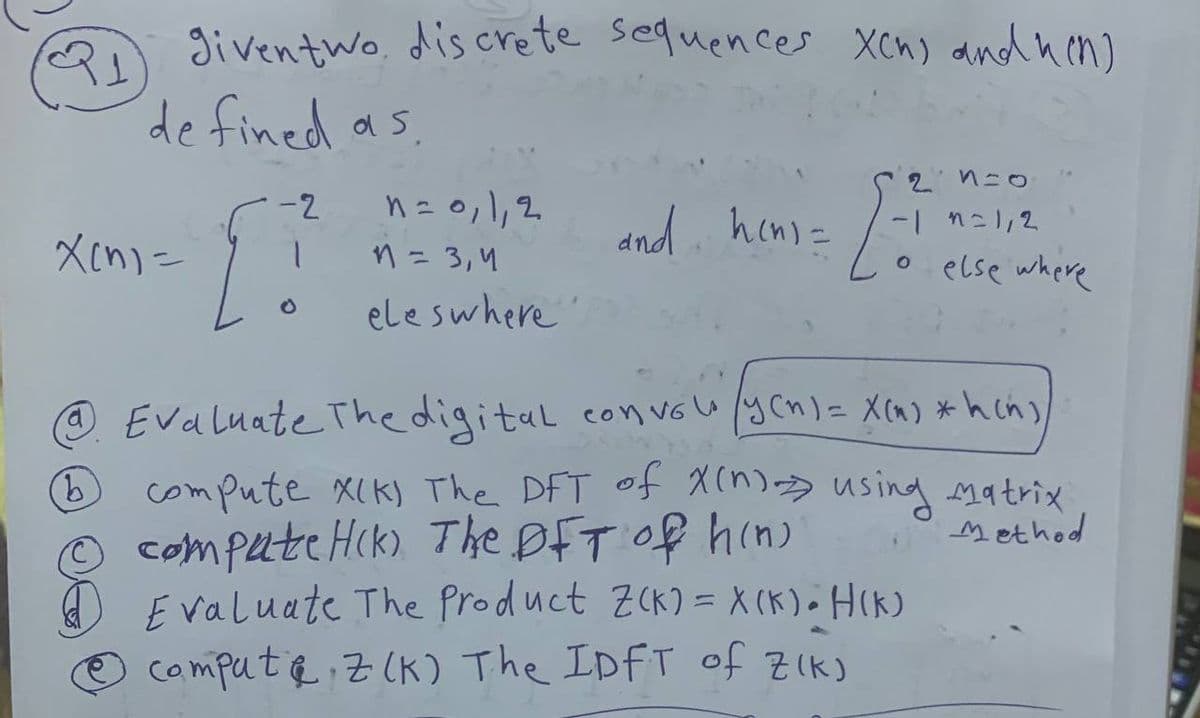 Q1 Given two. discrete sequences X(n) and h(n)
defined as.
X(n) = { -2 n = 0,1,2
1 n = 3,4
0 eleswhere
and h(n) = { 2 n=0
-1 n=1,2
0 else where
(a). Evaluate The digital convolu [y(n) = X(n) * h(n)]
(b) compute X(K) The DFT of X(n) ⇒ using Matrix Method
(c) compute H(k) The DFT of h(n)
(d) Evaluate The Product Z(K) = X(K) • H(K)
(e) compute Z(K) The IDFT of Z(K)